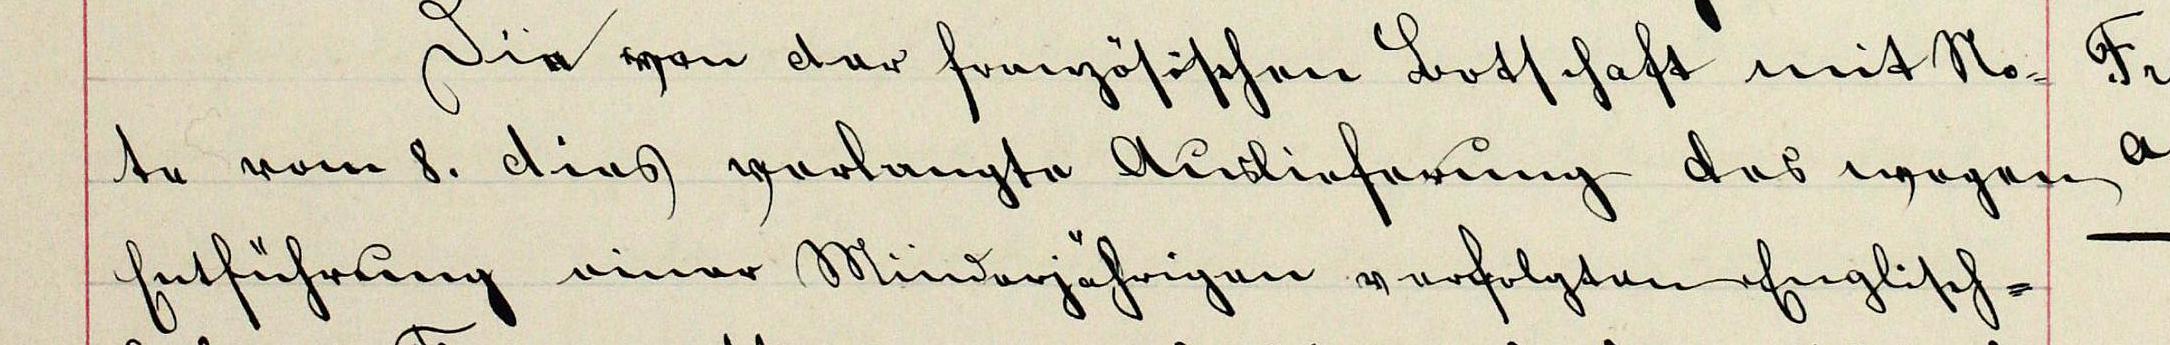 Die von der französischen Botschaft mit No-
te vom 8. dies verlangte Auslieferung des wegen
Entführung einer Minderjährigen verfolgten Englisch-